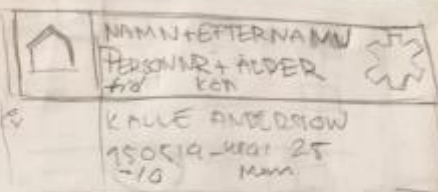 NAMN+EFTERNAMN
PERSONNR+ÅLDER
kön
KALLE ANDERSSON
950519- 25
-10 Man